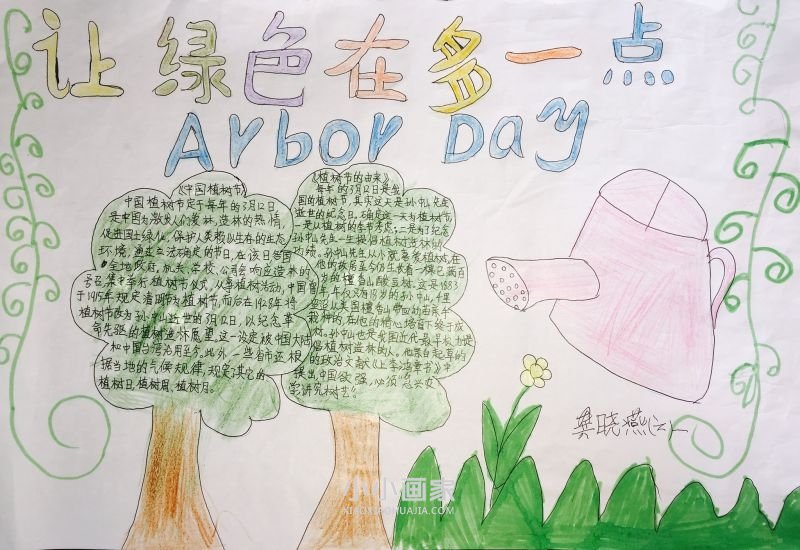 让绿色在多一点
Arbor Day
《中国植树节》
中国植树节定于每年的3月12日,
是中国为激发人们爱林、造林的热情,
促进国土绿化,保护人类赖以生存的生态
环境,通过立法确定的节日,在该日各国
全地政府,机关、学校、公司会响应造林的
号召集中举行植树节仪式,从事植树活动,中国曾
于1915年规定清明节为植树节,而后在1928年将
植树节改为孙中山逝世的3月12日,以纪念革
命先驱的植树造林愿望,这一设定被中国大陆
和中国台湾沿用至今,此外,一些省市还根
据当地的气候规律,规定了其它的
植树日,植树周,植树月。
《植树节的由来》
每年的3月12日是我
国的植树节,其实这天是孙中山先生
逝世的纪念日,确定这一天为植树节,
一是从植树的季节考虑;二是为了纪念
孙中山先生一生提倡植树造林的
功绩。孙中山先生从小就喜爱植树,在
他的故居至今仍生长着一棵已满百
岁的檀香山酸豆树,这是1883
年年仅17岁的孙中山,千里
迢迢从美国檀香山带回幼苗亲手
栽种的在他的精心培育下终于成
树。孙中山也是我国近代史最早极力提
倡植树造林的人。他亲自起草的
的政治文献《上李鸿章书》中
提出,中国欲强,必须急兴农
学,讲究树艺!
龚晓燕
小小画家
XIAOXIAOHUAJIA.COM